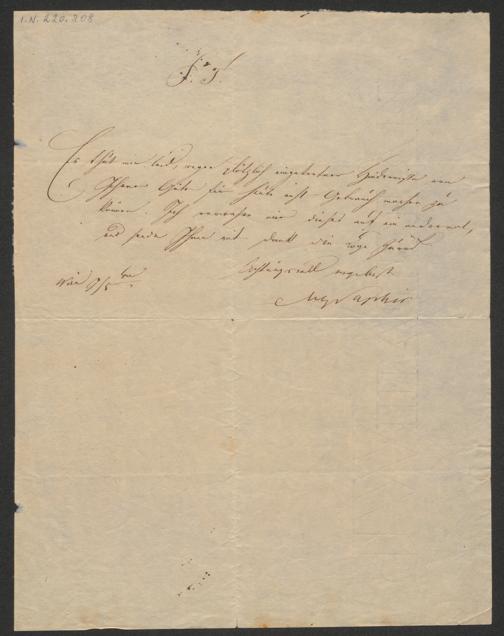 I.N. 220.208
Es thut mir leid, wegen plötzlich eingetretener Hindernisse von
Ihrer Güte für heute nicht Gebrauch machen zu
können. Ich verspare mir dieses auf ein andermal,
und sende Ihnen mit Dank die Loge zurück
Achtungsvoll ergebenst
Wien
MGSaphir